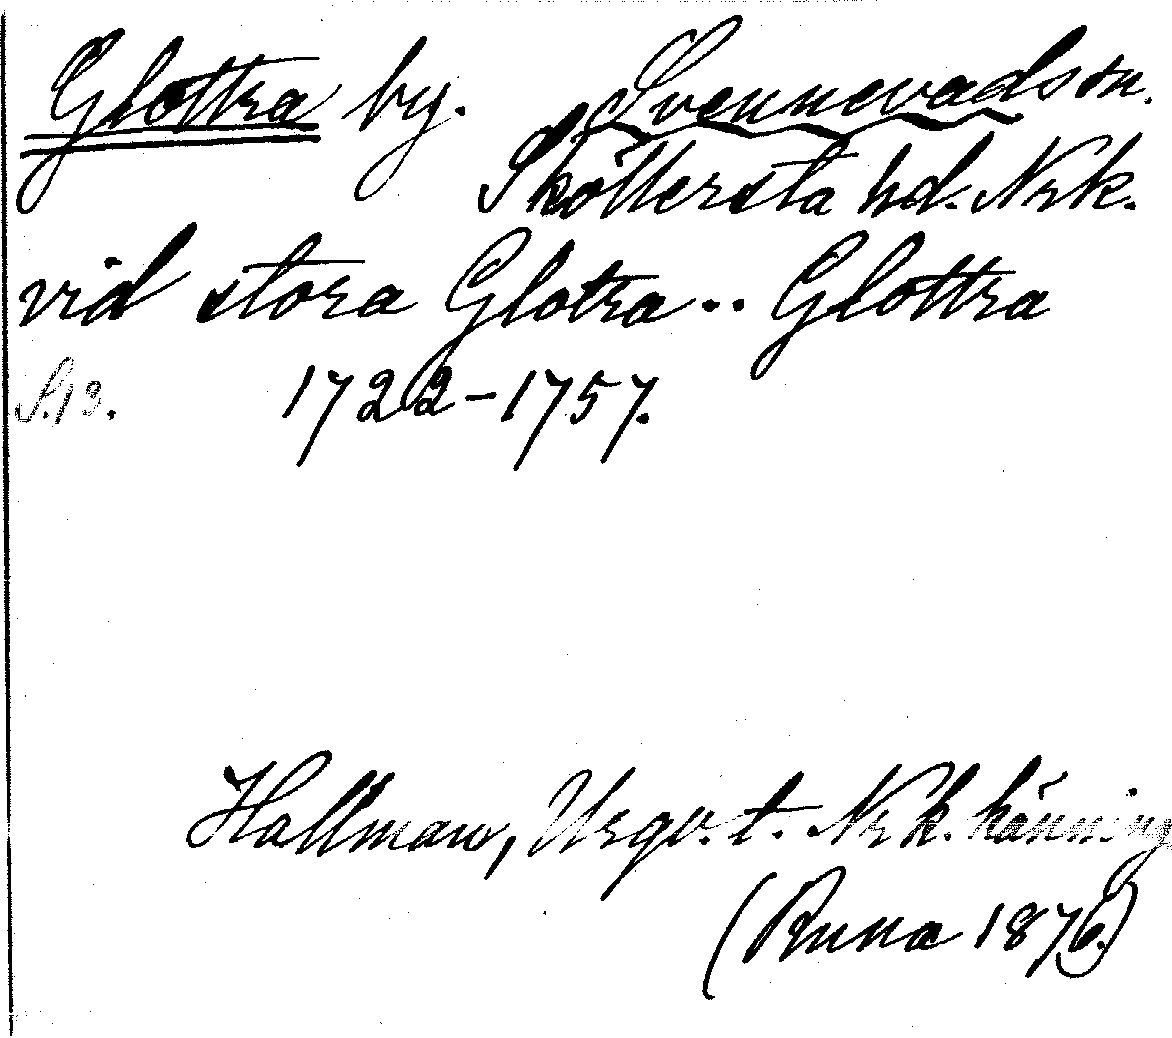 Glottra by. Svennevads sn.
Sköllersta hd. Nrk.
vid stora Glotra.. Glottra
S. 13. 1722-1757.
Hallman, Urspr. t. Nrk. känning
(Runa 1876.)